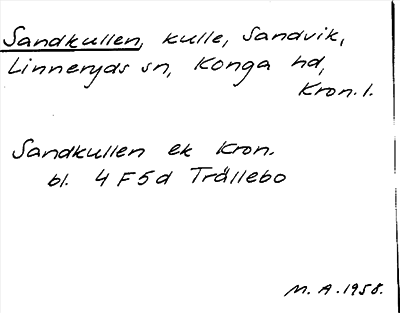 Sandkullen, kulle, Sandvik,
Linneryds sn, Konga hd,
Kron. l.
Sandkullen ek Kron.
bl. 4 F 5 d Trällebo
M. A. 1958.